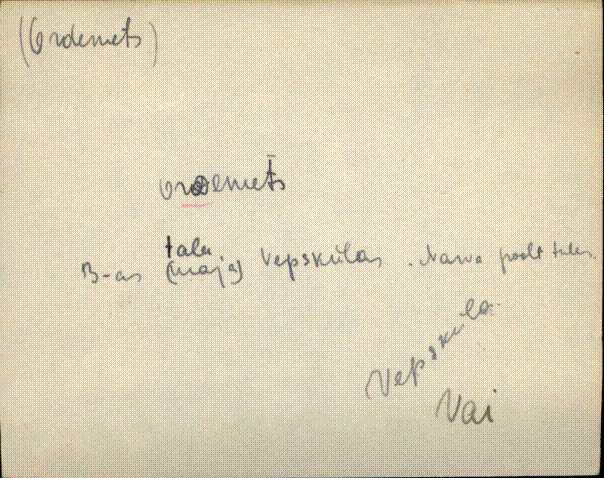 (Ordemets)
ordemets
talu
B-as (maja) Vepskülas. Narva poolt tulles.
Vepsküla
Vai